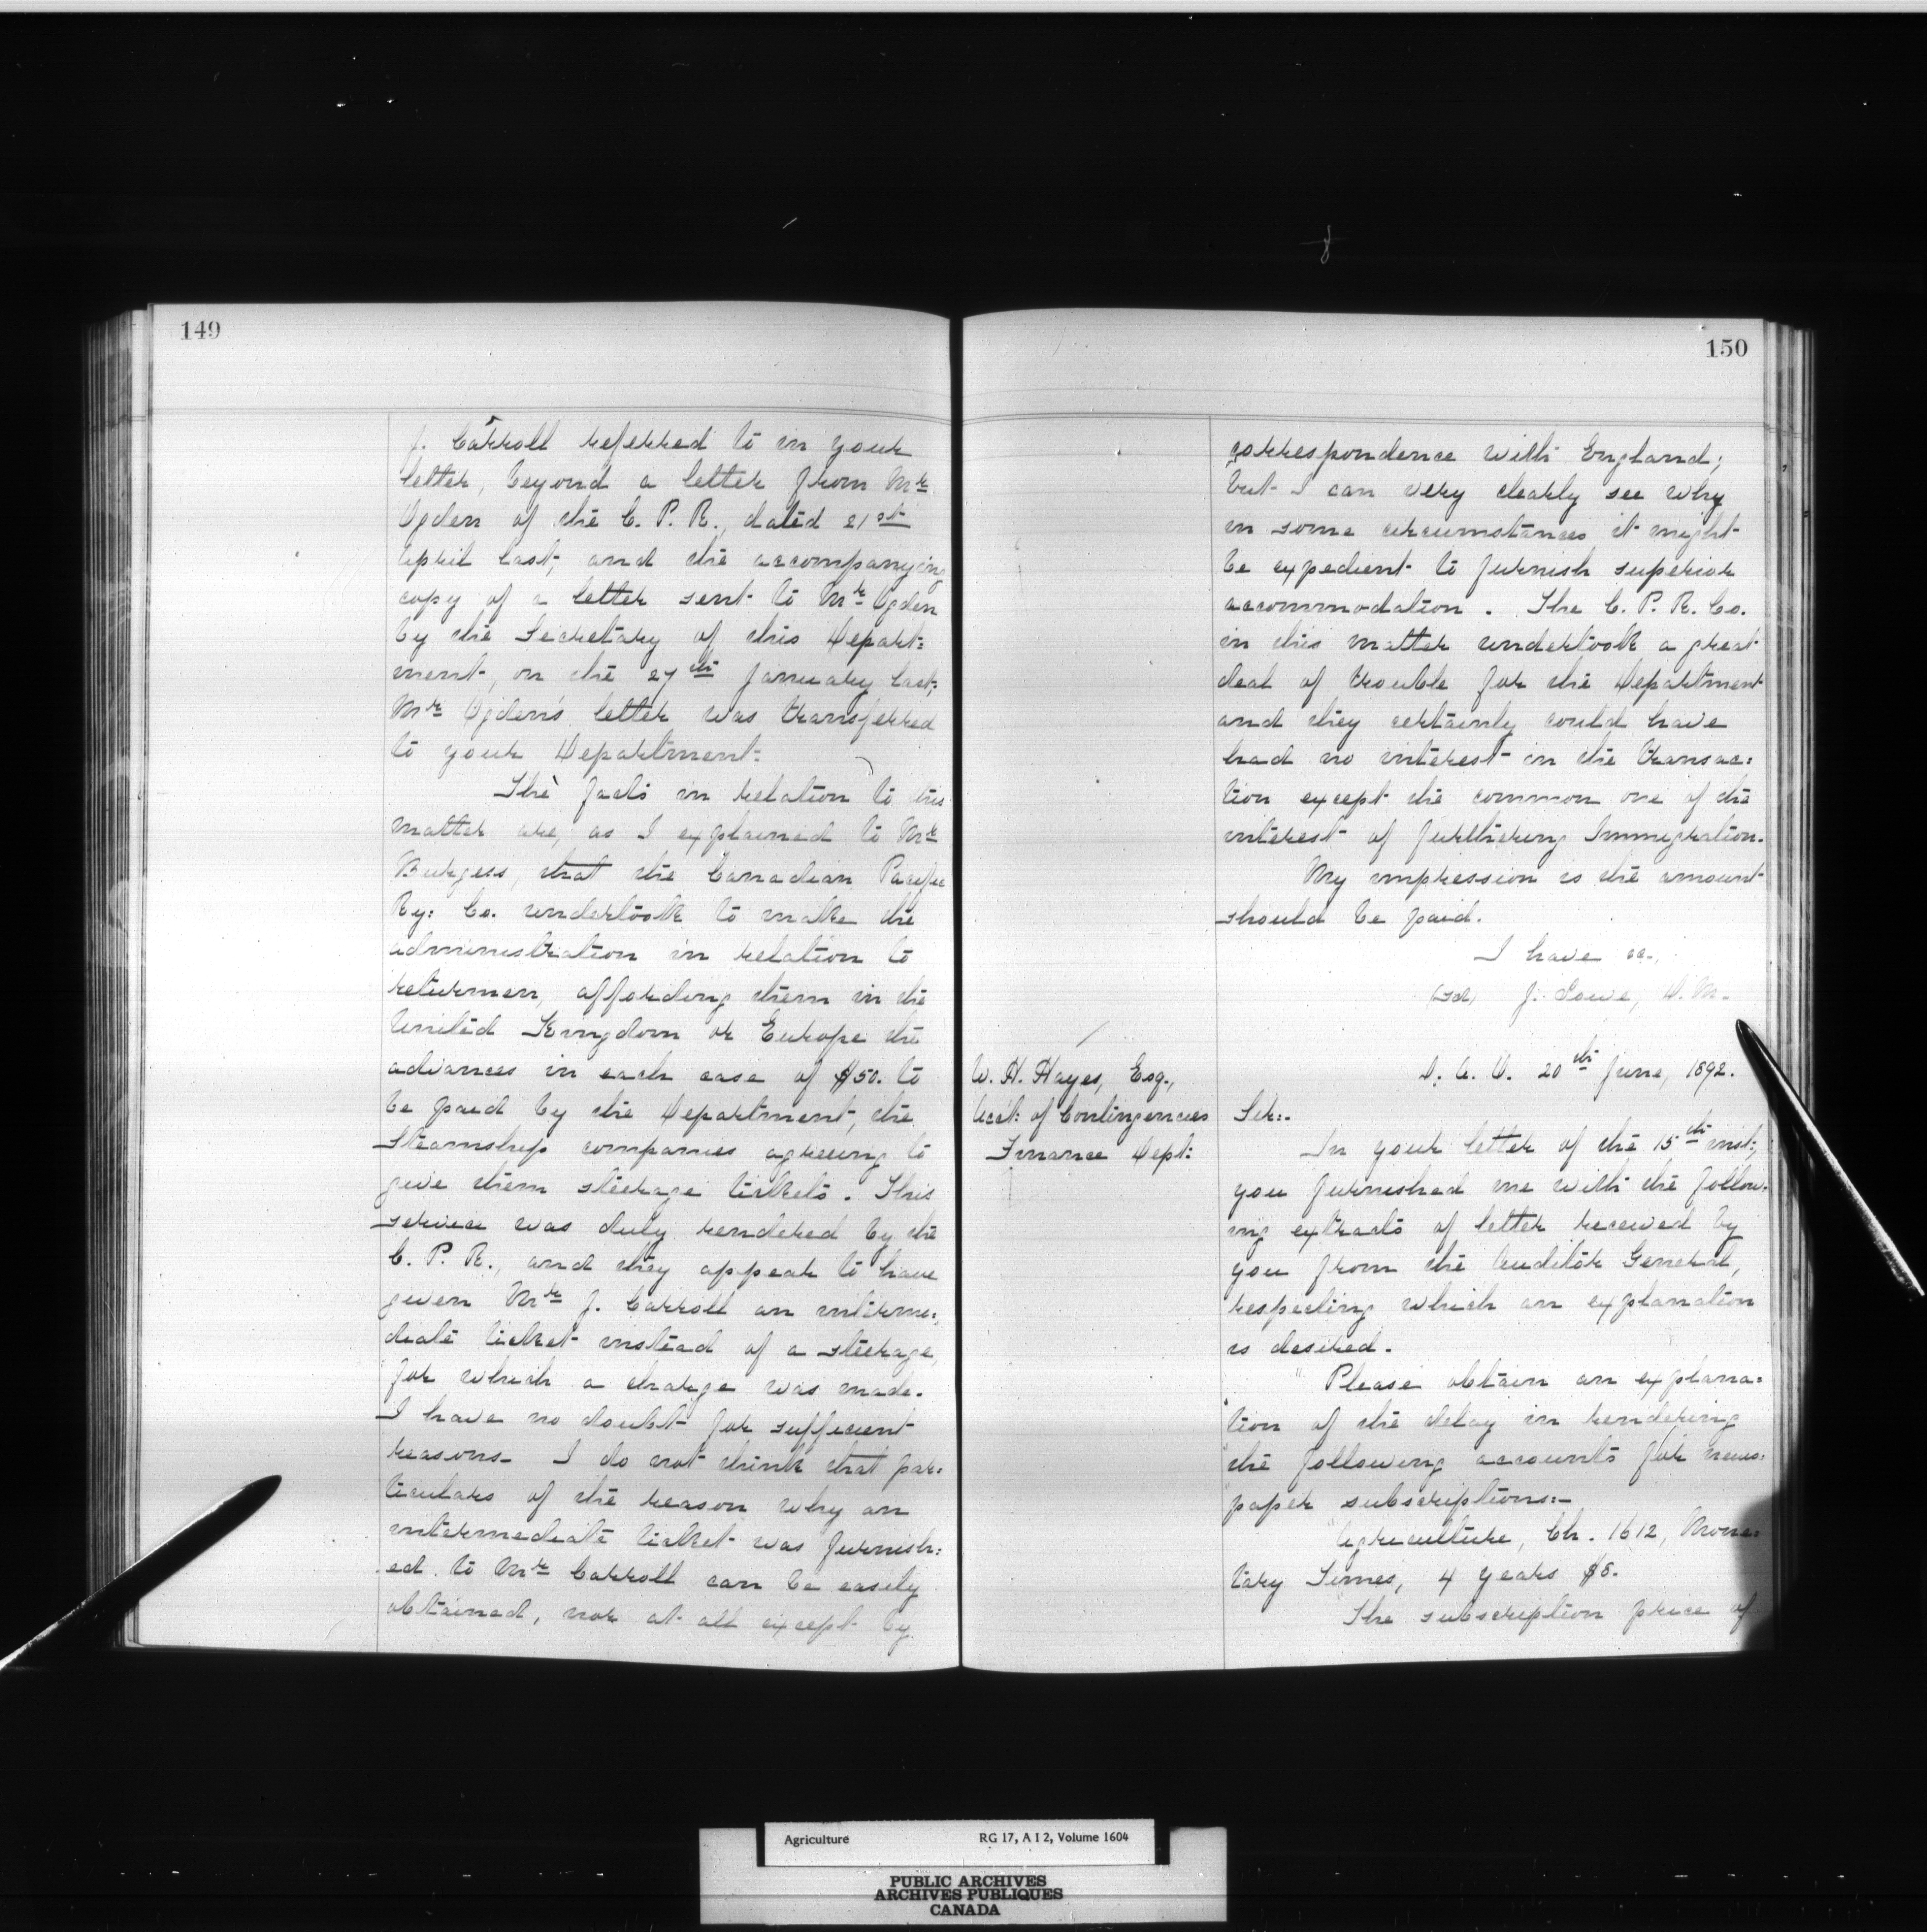 149
J. Carroll referred to in your
letter, beyond a letter from Mr
Ogden of the C. P. R., dated 21st
April last, and the accompanying
copy of a letter sent to Mr Ogden
by the Secretary of this Depart=
ment, on the 27th January last.
Mr Ogden's letter was transferred
to your Department.
The facts in relation to this
matter are, as I explained to Mr
Burgess, that the Canadian Pacific
Ry: Co. undertook to make the
administration in relation to
returnmen, affording them in the
United Kingdom or Europe the
advances in each case of $50. to
be paid by the Department, the
Steamship companies agreeing to
give them steerage tickets. This
service was duly rendered by the
C. P. R., and they appear to have
given Mr J. Carroll an interme=
diate ticket instead of a steerage,
for which a charge was made.
I have no doubt for sufficient
reasons. I do not think that par=
ticulars of the reason why an
intermediate ticket was furnish=
ed to Mr Carroll can be easily
obtained, nor at all except by
150
correspondence with England;
but I can very clearly see why
in some circumstances it might
be expedient to furnish superior
accommodation. The C. P. R. Co.
in this matter undertook a great
deal of trouble for the Department
and they certainly could have
had no interest in the transac=
tion except the common one of the
interest of furthering Immigration.
My impression is the amount
should be paid.
I have &c.,
(Sd) J. Lowe, D. M.
W. H. Hayes, Esq.,
Acct: of Contingencies
Finance Dept:
D. A. O. 20th June, 1892.
Sir:-
In your letter of the 15th inst:,
you furnished me with the follow=
ing extracts of letter received by
you from the Auditor General,
respecting which an explanation
is desired.
"Please obtain an explana=
"tion of the delay in rendering
"the following accounts for news=
"paper subscriptions:-
"Agriculture, Ch. 1612, Mone=
tary Times, 4 years $8.
The subscription price of
Agriculture RG 17, A I 2, Volume 1604
PUBLIC ARCHIVES
ARCHIVES PUBLIQUES
CANADA